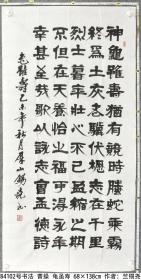 神龜雖壽猶有竟時騰蛇乘霧
終為土灰老驥伏櫪志在千里
烈士暮年壯心不已盈縮之期
不但在天養怡之福可得永年
幸甚至哉歌以詠志
龜雖壽 乙未年秋月
84102号书法 曹操 龟虽寿 68×138cm 作者：兰锡尧